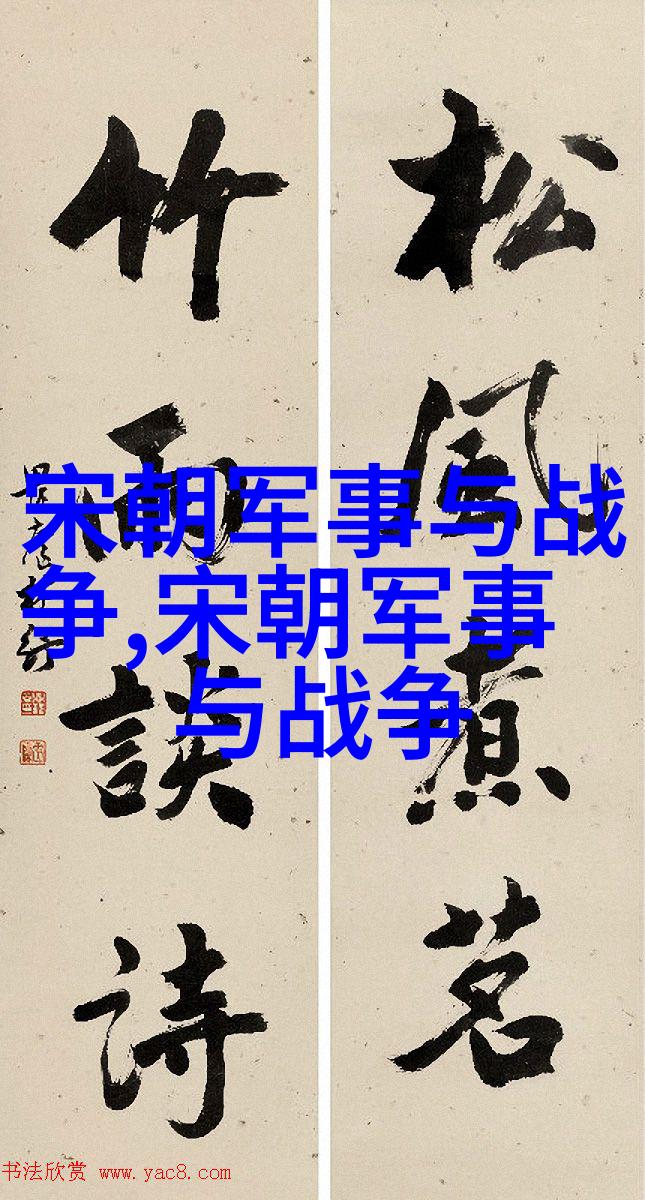 松風煮茗
竹雨談詩
宋朝军事与战
争,宋朝军事
与战争
书法欣赏 www.yac8.com